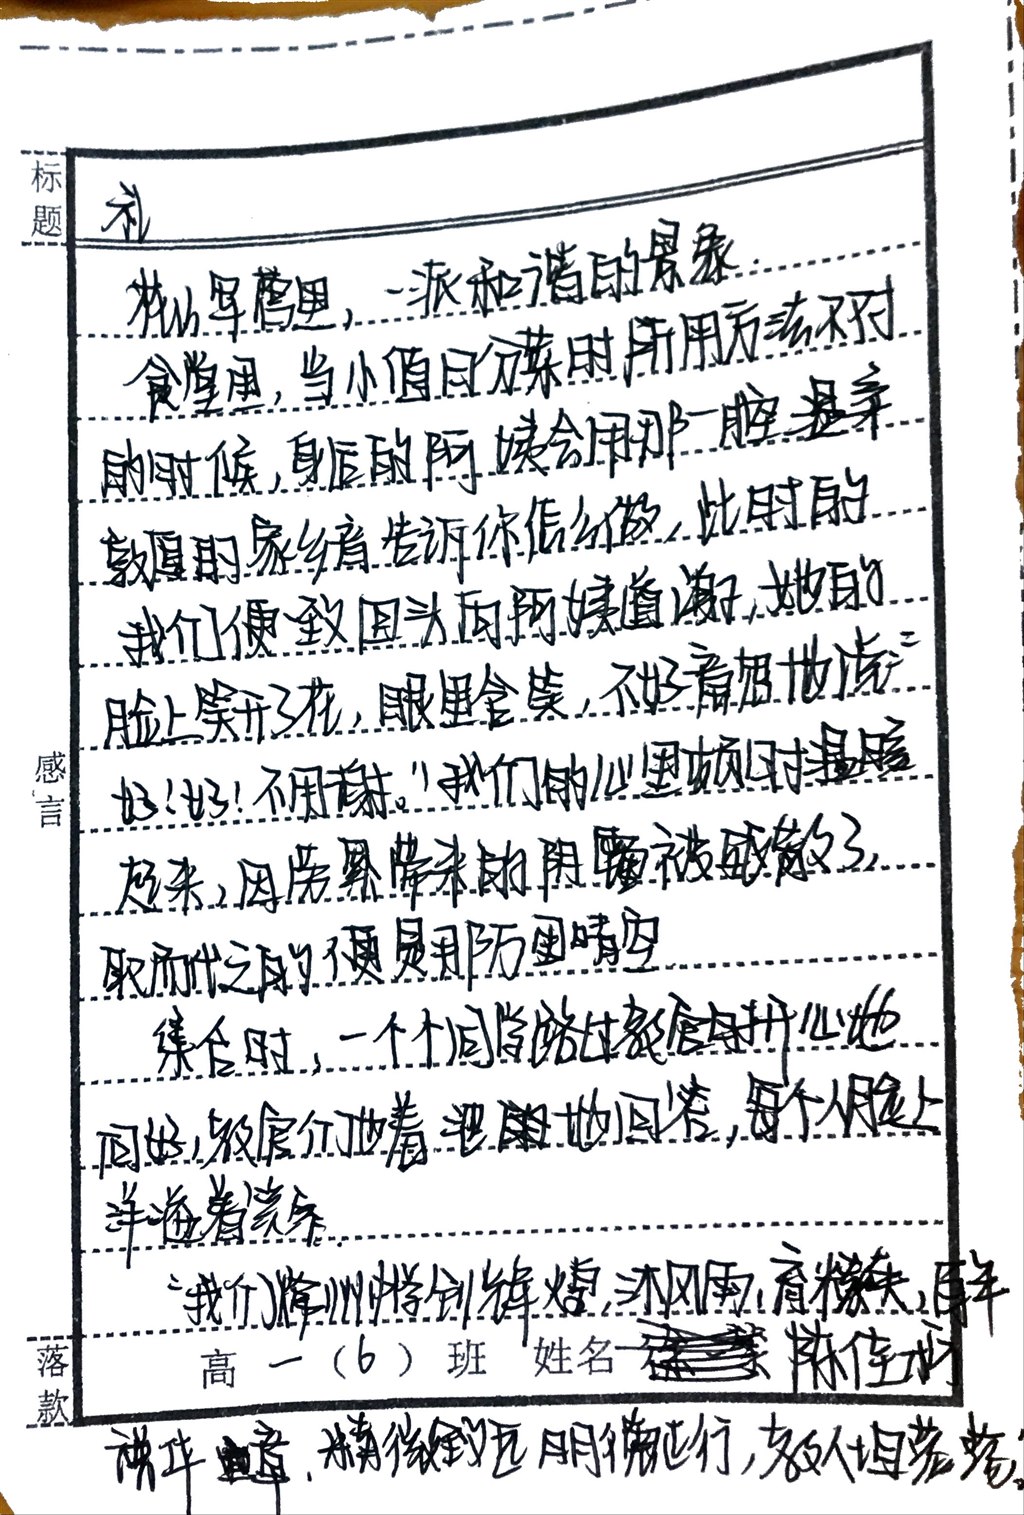 标题
礼
军营里，一派和谐的景象.
食堂里，当小值日分菜时所用方法不对
的时候，身后的阿姨会用那一腔温柔
敦厚的家乡音告诉你怎么做，此时的
我们便致回头向阿姨道谢，她的
脸上笑开了花，眼里含笑，不好意思地说：
好！好！不用谢。"我们的心里顿时温暖
起来，因劳累带来的阴霾被驱散了，
取而代之的便是那万里晴空
集合时，一个个同学路过教官都开心地
问好，教官们也着地回答，每个人脸上
洋溢着笑容.
感言
"我们，沐风雨，育
落款
高一（6）班 姓名 陈佳
精微致远 明德笃行，教人